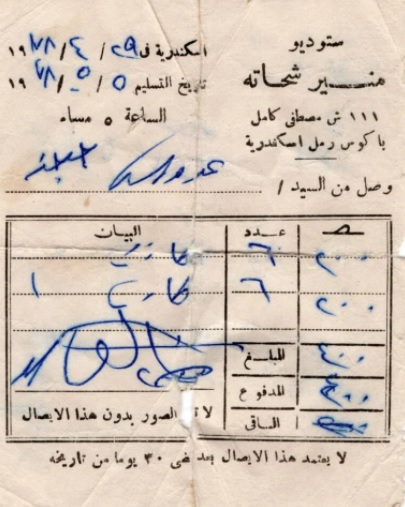 ستوديو
منير شحاته
١١١ ش مصطفى كامل
باكوس رمل اسكندرية
اسكندرية فى ٢٩ / ٤ / ١٩٧٨
تاريخ التسليم ٥ / ٥ / ١٩٧٨
الساعة ٥ مساء
وصل من السيد /
البيان عدد
كارت ٦ ٢٠٠
كارت ٦ ٢٠٠
المبلغ ٤٠٠
المدفوع ٤٠٠
الباقى
الصور بدون هذا الايصال
لا يعتمد هذا الايصال بعد مضى ٣٠ يوما من تاريخه